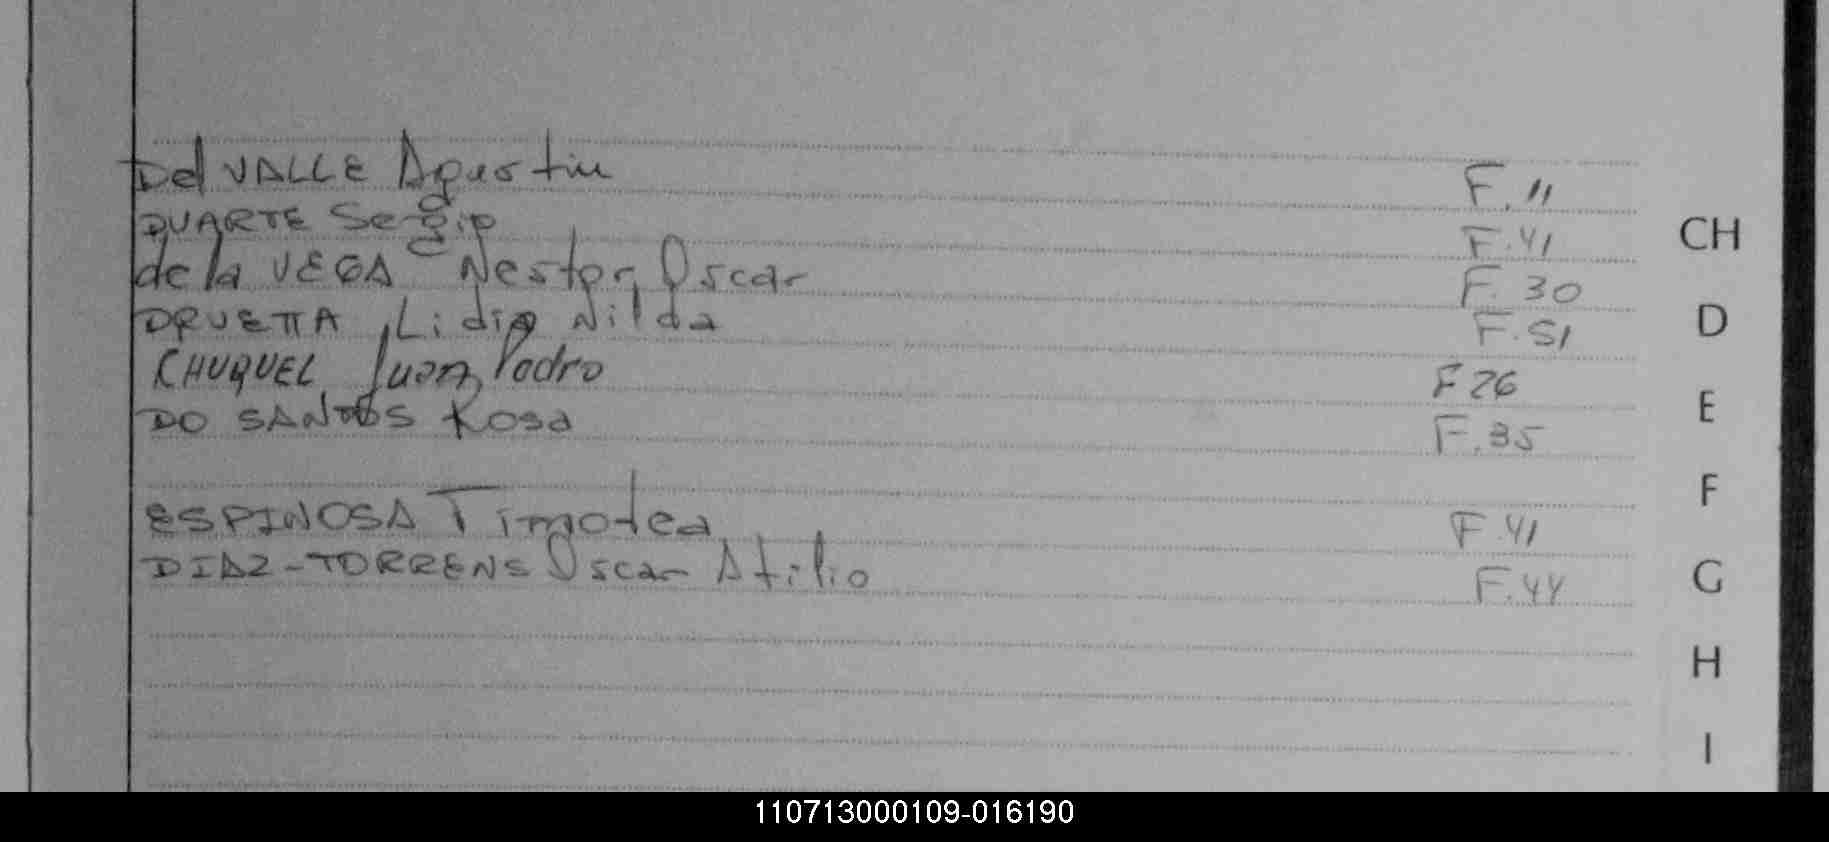 Del VALLE Agustin F. 11
DUARTE Sergio F. 41
de la VEGA Nestor Oscar F. 30
DRUETTA, Lidia Nilda F. 51
CHUQUEL Juan Pedro F 26
DO SANTOS Rosa F. 35
ESPINOSA Timotea F. 41
DIAZ-TORRENS Oscar Atilio F. 44
CH
D
E
F
G
H
I
110713000109-016190